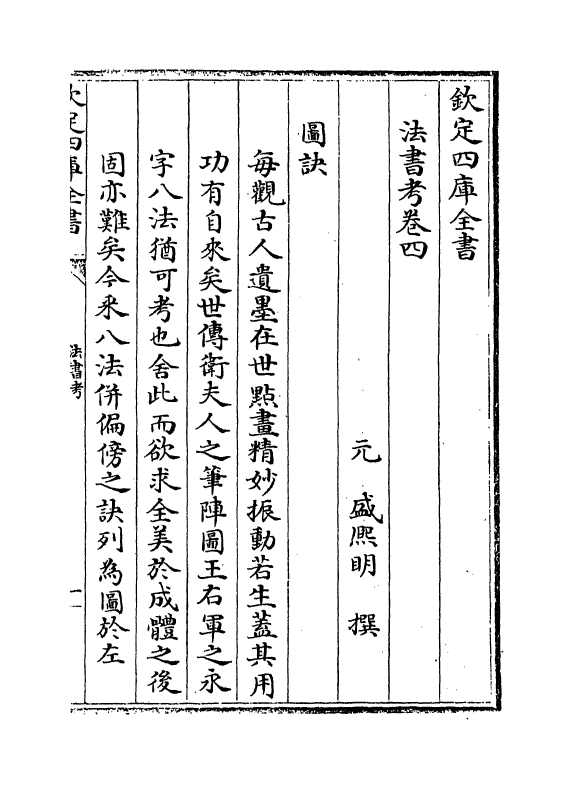 欽定四庫全書
法書考卷四
元 盛熙明 撰
圖訣
每觀古人遺墨在世點畫精妙振動若生蓋其用
功有自來矣世傳衛夫人之筆陣圖王右軍之永
字八法猶可考也舍此而欲求全美於成體之後
固亦難矣今釆八法併偏傍之訣列為圖於左
欽定四庫全書
法書考
一